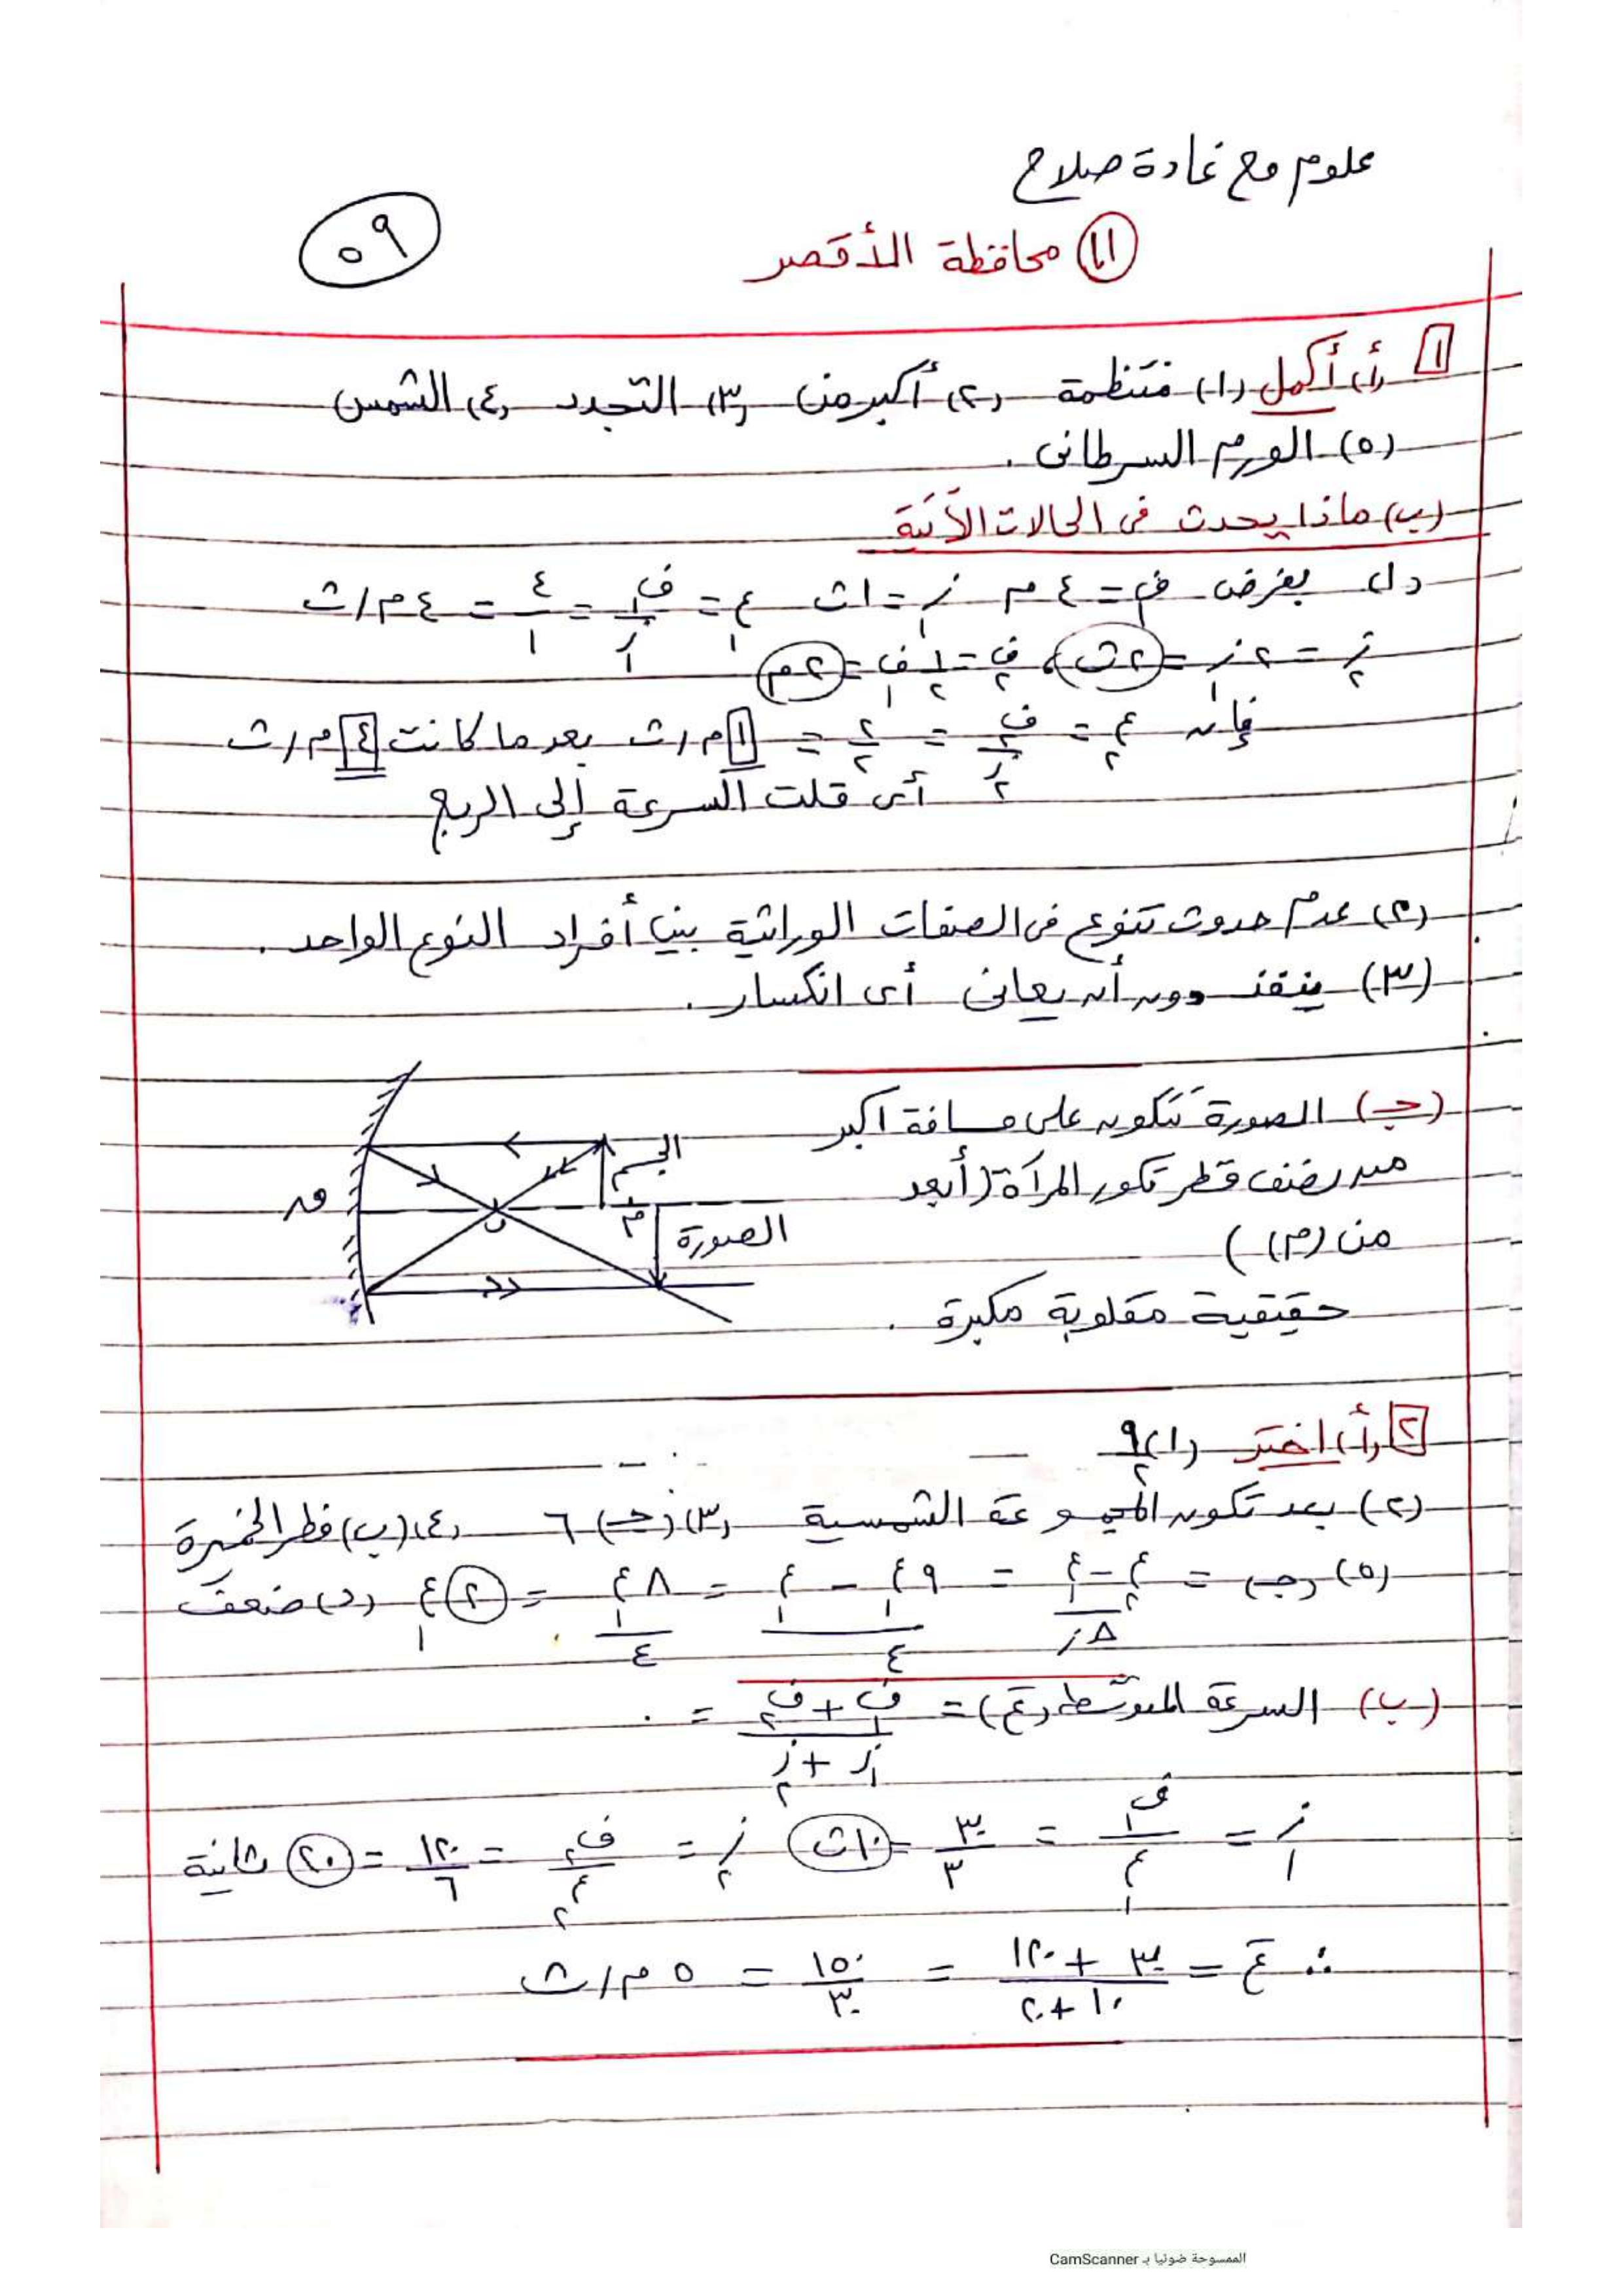 علوم مع غادة صلاح
٥٩
(١١) محافظة الأقصر
[١] (أ) أكمل (١) منتظمة (٢) أكبر من (٣) التجدد (٤) الشمس
(٥) الورم السرطانى .
(ب) ماذا يحدث فى الحالات الآتية
(١) بفرض ف١ = ٤ م ز١ = ١ث ع١ = ف١/ز١ = ٤/١ = ٤ م/ث
ز٢ = ٢ ز١ = ٢ث ، ف٢ = ١/٢ ف١ = ٢م
فإن ع٢ = ف٢/ز٢ = ٢/٢ = ١ م/ث بعد ما كانت ٤ م/ث
أى قلت السرعة إلى الربع
(٢) عدم حدوث تنوع فى الصفات الوراثية بين أفراد النوع الواحد .
(٣) ينفذ دون أن يعانى أى انكسار .
(جـ) الصورة تتكون على مسافة أكبر
من نصف قطر تكور المرآة (أبعد
من (م) )
حقيقية مقلوبة مكبرة .
الجسم
م
ق
ب
الصورة
[٢] (أ) اختر (١) ٩/٢
(٢) بعد تكون المجموعة الشمسية (٣) (جـ) ٦ (٤) (ب) فطر الخميرة
(٥) (جـ) = ع٢ - ع١/Δز = ٩ع١ - ع١/٤ = ٨ع١/٤ = ٢ ع١ (د) ضعف
(ب) السرعة المتوسطة (ع) = ف١ + ف٢/ز١ + ز٢ = .
ز١ = ف١/ع١ = ٣٠/٣ = ١٠ث ز٢ = ف٢/ع٢ = ١٢٠/٦ = ٢٠ ثانية
∴ ع = ٣٠ + ١٢٠/١٠ + ٢٠ = ١٥٠/٣٠ = ٥ م/ث
الممسوحة ضوئيا بـ CamScanner